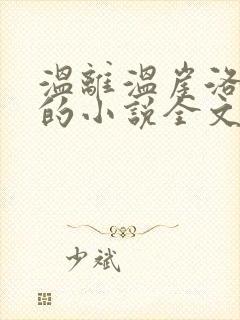 温離温崖洛
的小說全文
少斌